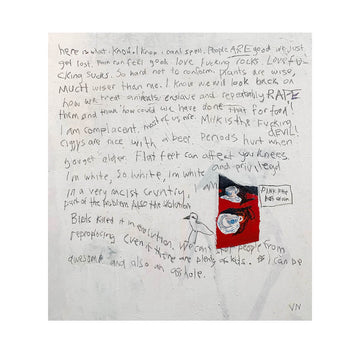 here is what I know. I know I cant spell. People ARE good we just
get lost. Pain can feel good. love fucking rocks. Love fu-
cking sucks. So hard not to conform. Plants are wise,
MUCH wiser than me. I know we will look back on
how we treat animals, enslave and repeatedly RAPE
them and think 'how could we have done that for food'!
I am complacent, most of us are. Milk is the fucking
devil!
ciggys are nice with a beer. Periods hurt when
you get older. Flat feet can affect you knees
I'm white, so white, im white and privilead
in a very racist country, am
part of the problem. Also the
Birds nailed it in evolution. We cant stop people from
reproducing (even if there are plenty of kids. I can be
awesome and also an asshole.
PINK
VN